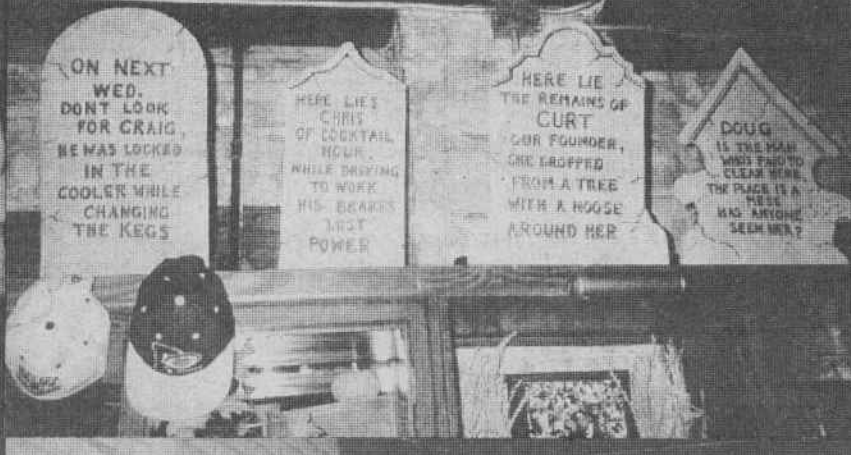 ON NEXT
WED.
DONT LOOK
FOR CRAIG,
HE WAS LOCKED
IN THE
COOLER WHILE
CHANGING
THE KEGS
HERE LIES
CHRIS
OF COCKTAIL
HOUR,
WHILE DRIVING
TO WORK
HIS BRAKES
LOST
POWER
HERE LIE
THE REMAINS OF
CURT
OUR FOUNDER,
SHE DROPPED
FROM A TREE
WITH A NOOSE
AROUND HER
DOUG
IS THE MAN
WHO'S PAID TO
CLEAN HERE,
THE PLACE IS A
MESS
HAS ANYONE
SEEN HER?